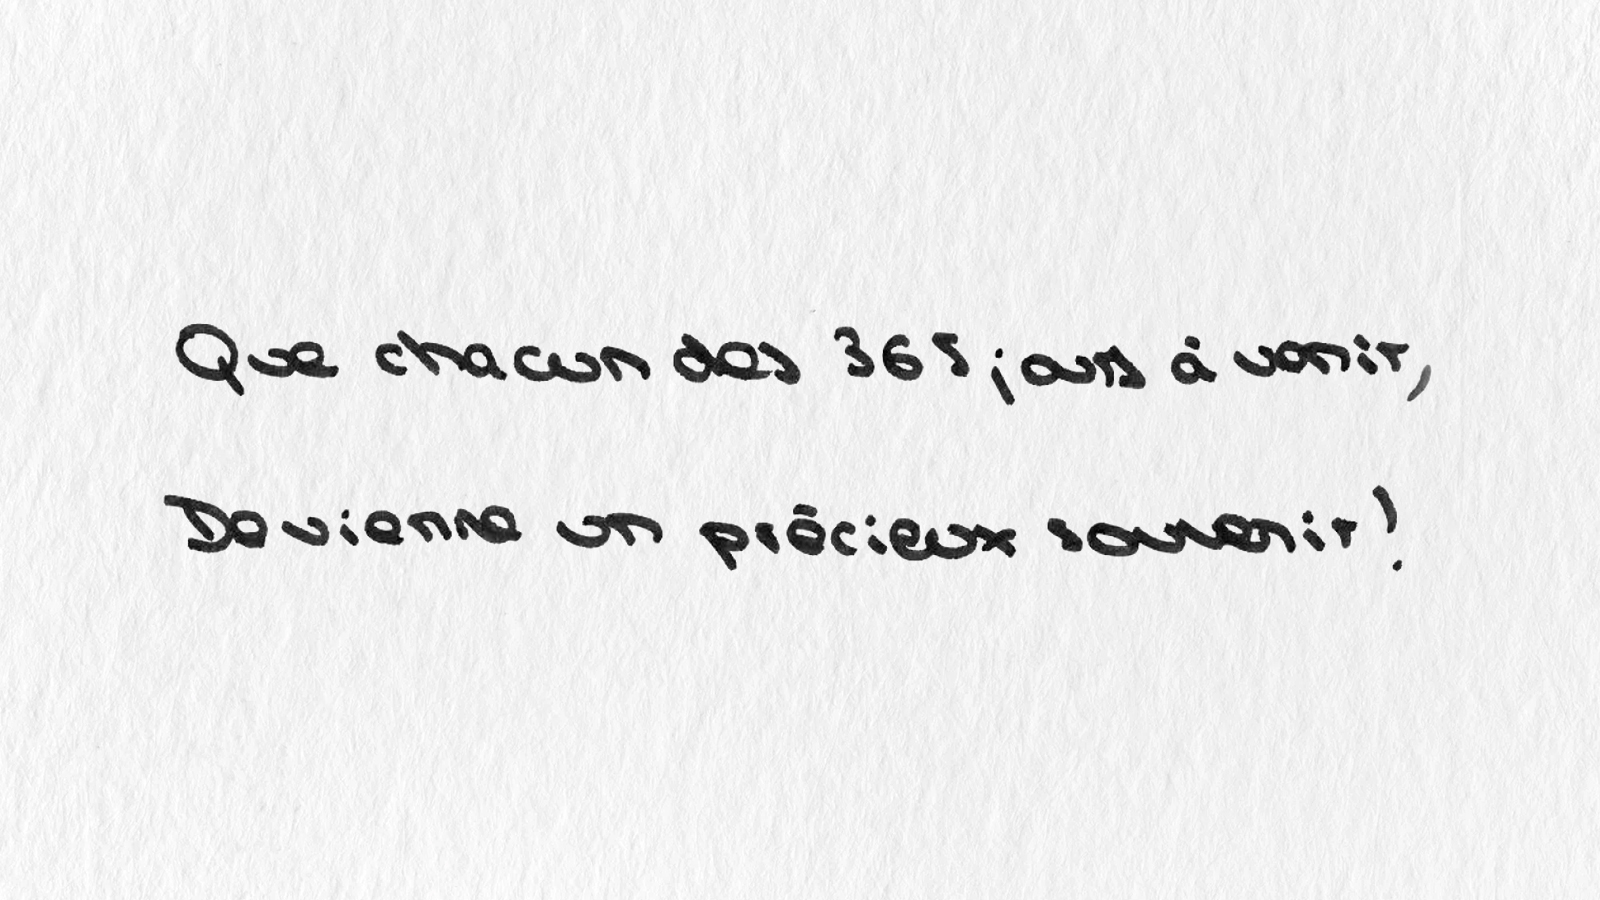 Que chacun des 365 jours à venir,
Devienne un précieux souvenir !